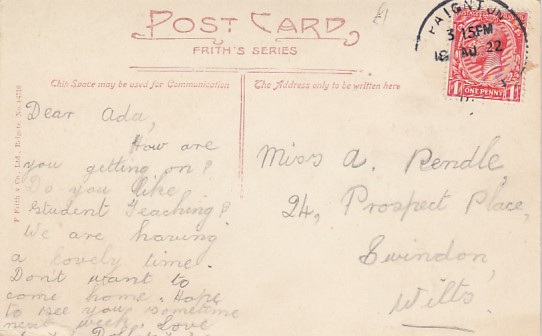 £1
POST CARD
FRITH'S SERIES
PAIGNTON
3 15PM
18 AU 22
1 ONE PENNY 1
This Space may be used for Communication
The Address only to be written here
F. Frith & Co., Ltd., Reigate.
Dear Ada,
How are
you getting on?
Do you like
Student Teaching?
We are having
a lovely time.
Don't want to
come home. Hope
to see you sometime
next week. Love
Miss A. Rendle,
24, Prospect Place,
Swindon,
Wilts.